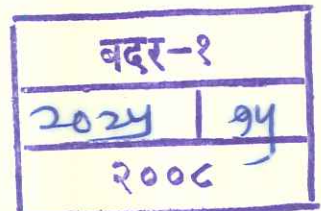 बदर-१
२०२५ | १५
२००८